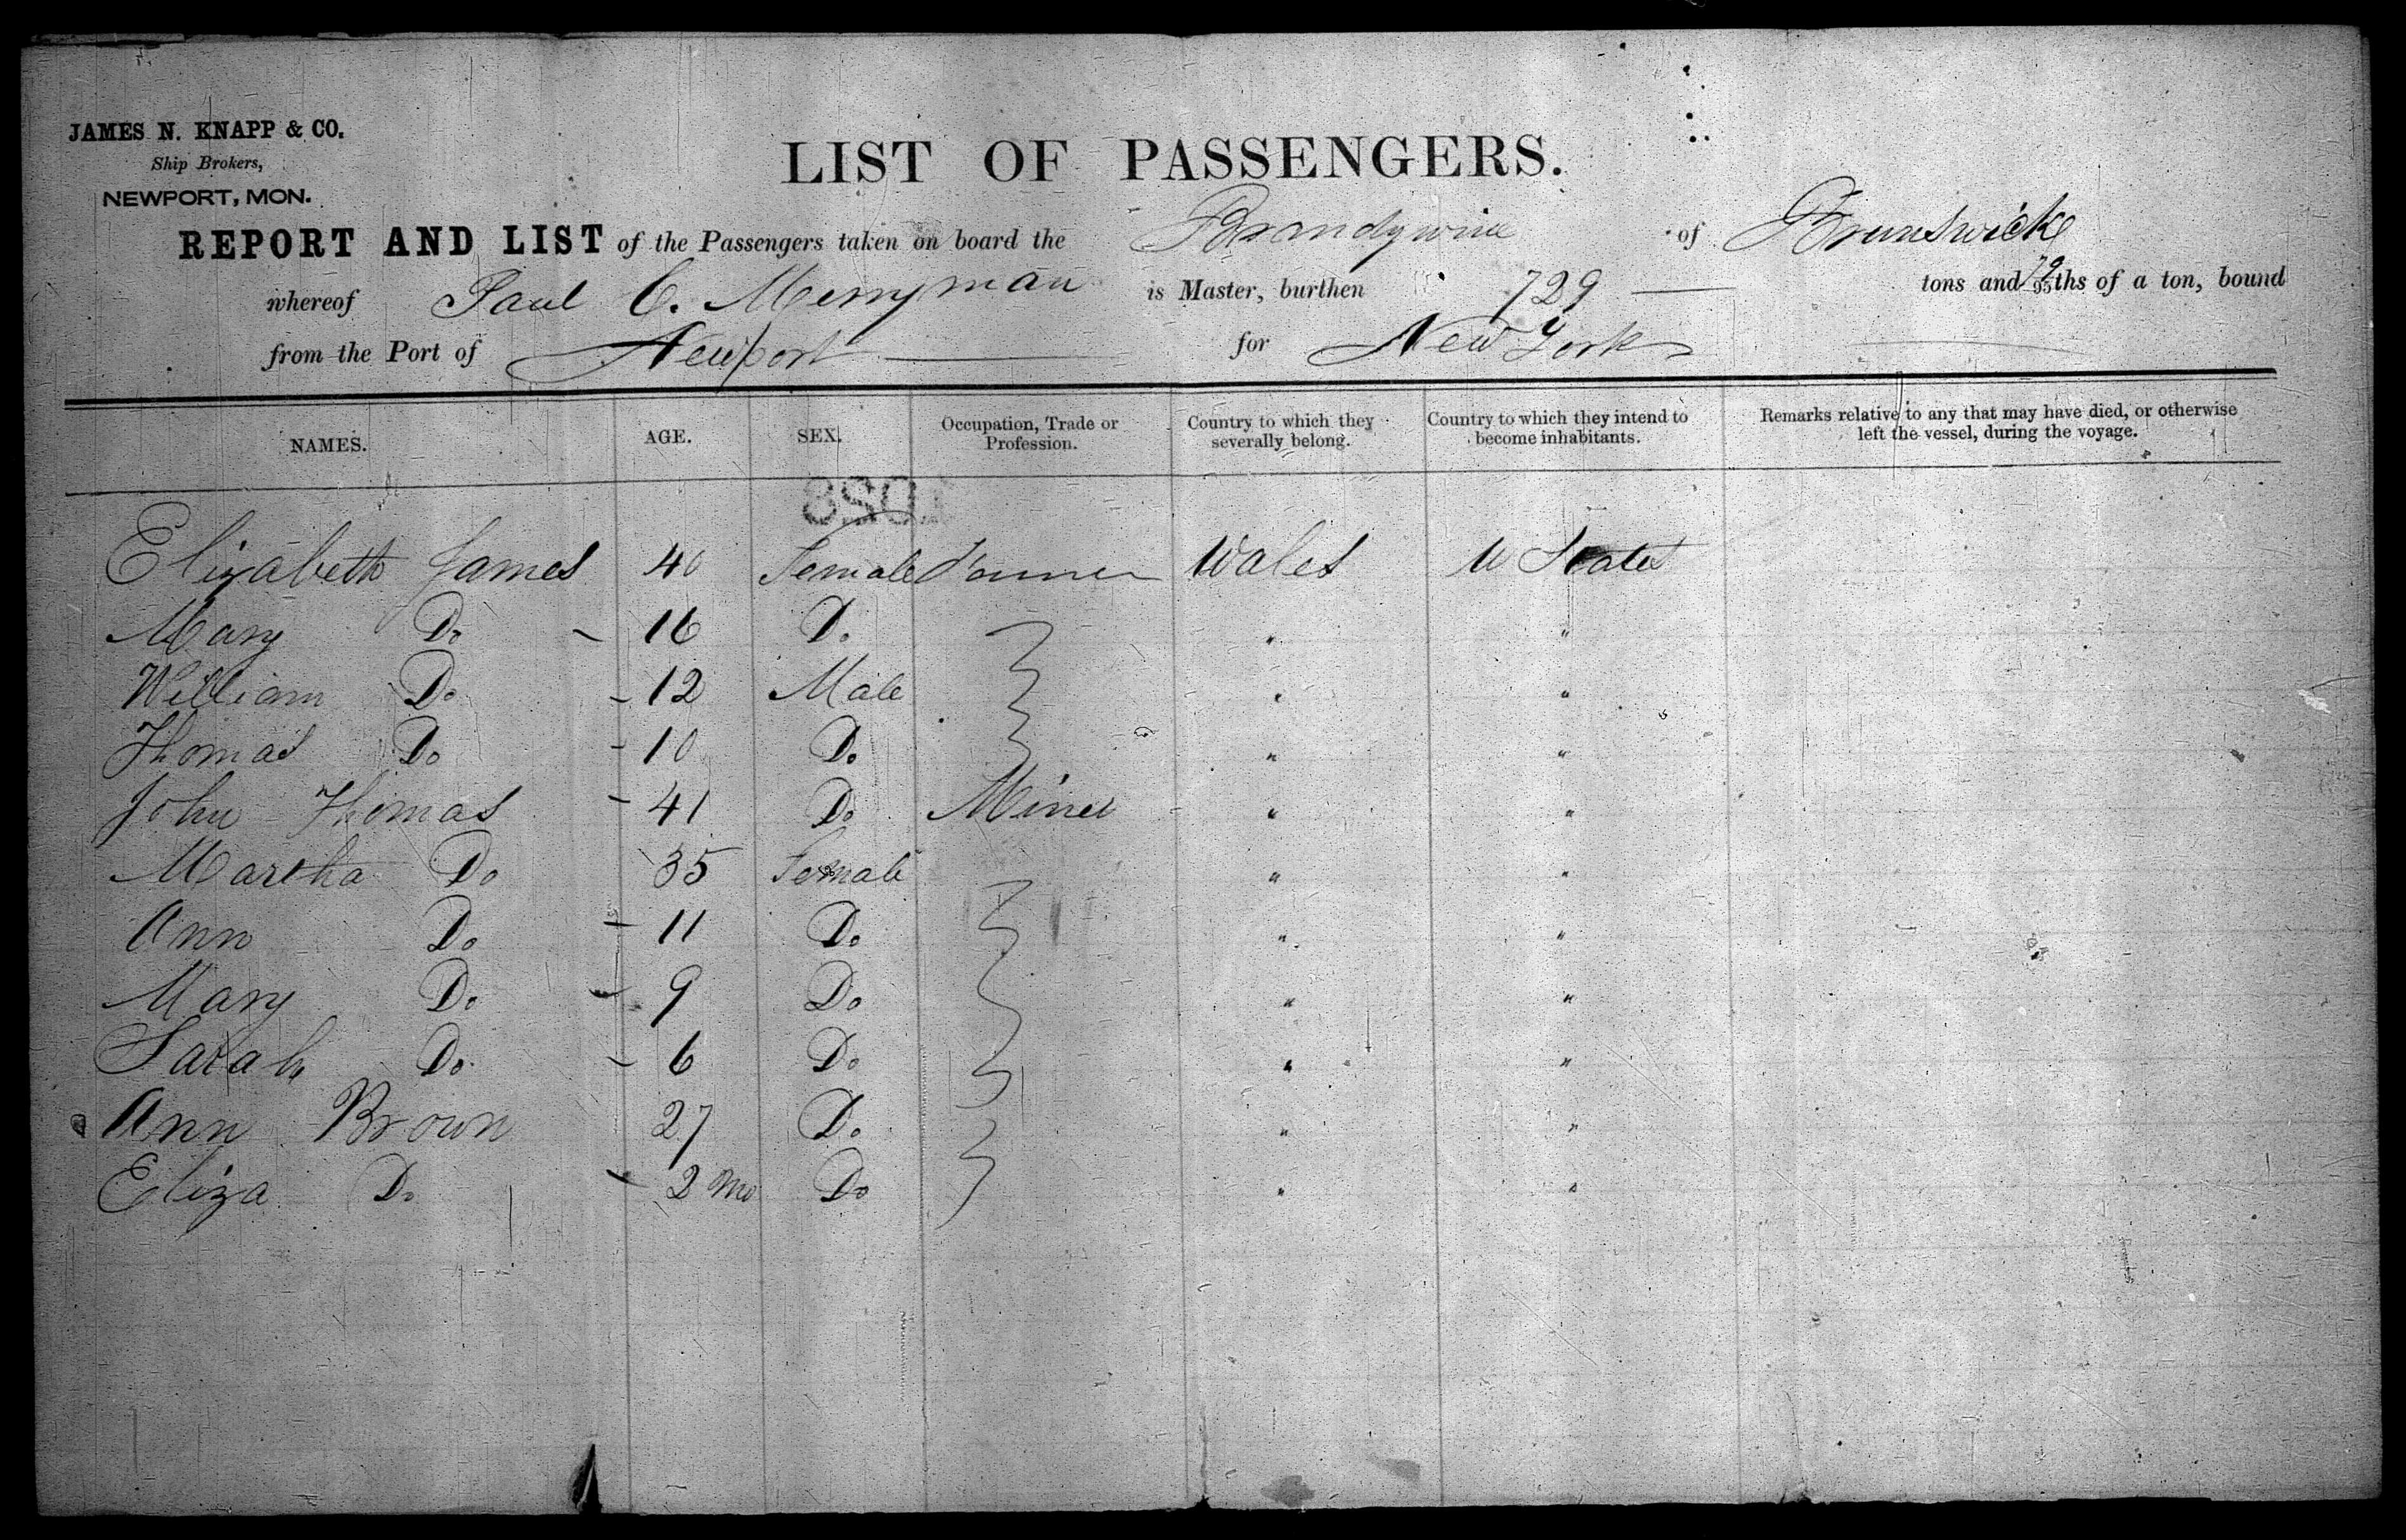 JAMES N. KNAPP & CO.
Ship Brokers,
NEWPORT, MON.
LIST OF PASSENGERS.
REPORT AND LIST of the Passengers taken on board the Brandywine of Brunswick
whereof Paul C. Merryman is Master, burthen 729 tons and 79/95ths of a ton, bound
from the Port of Newport for New York
NAMES. AGE. SEX. Occupation, Trade or Profession. Country to which they severally belong. Country to which they intend to become inhabitants. Remarks relative to any that may have died, or otherwise left the vessel, during the voyage.
Elizabeth James 40 Female Wales U States
Mary Do - 16 Do " "
William Do - 12 Male " "
Thomas Do - 10 Do " "
John Thomas - 41 Do Miner " "
Martha Do 35 Female " "
Ann Do - 11 Do " "
Mary Do - 9 Do " "
Sarah Do - 6 Do " "
Ann Brown 27 Do " "
Eliza Do - 2 Mo Do " "